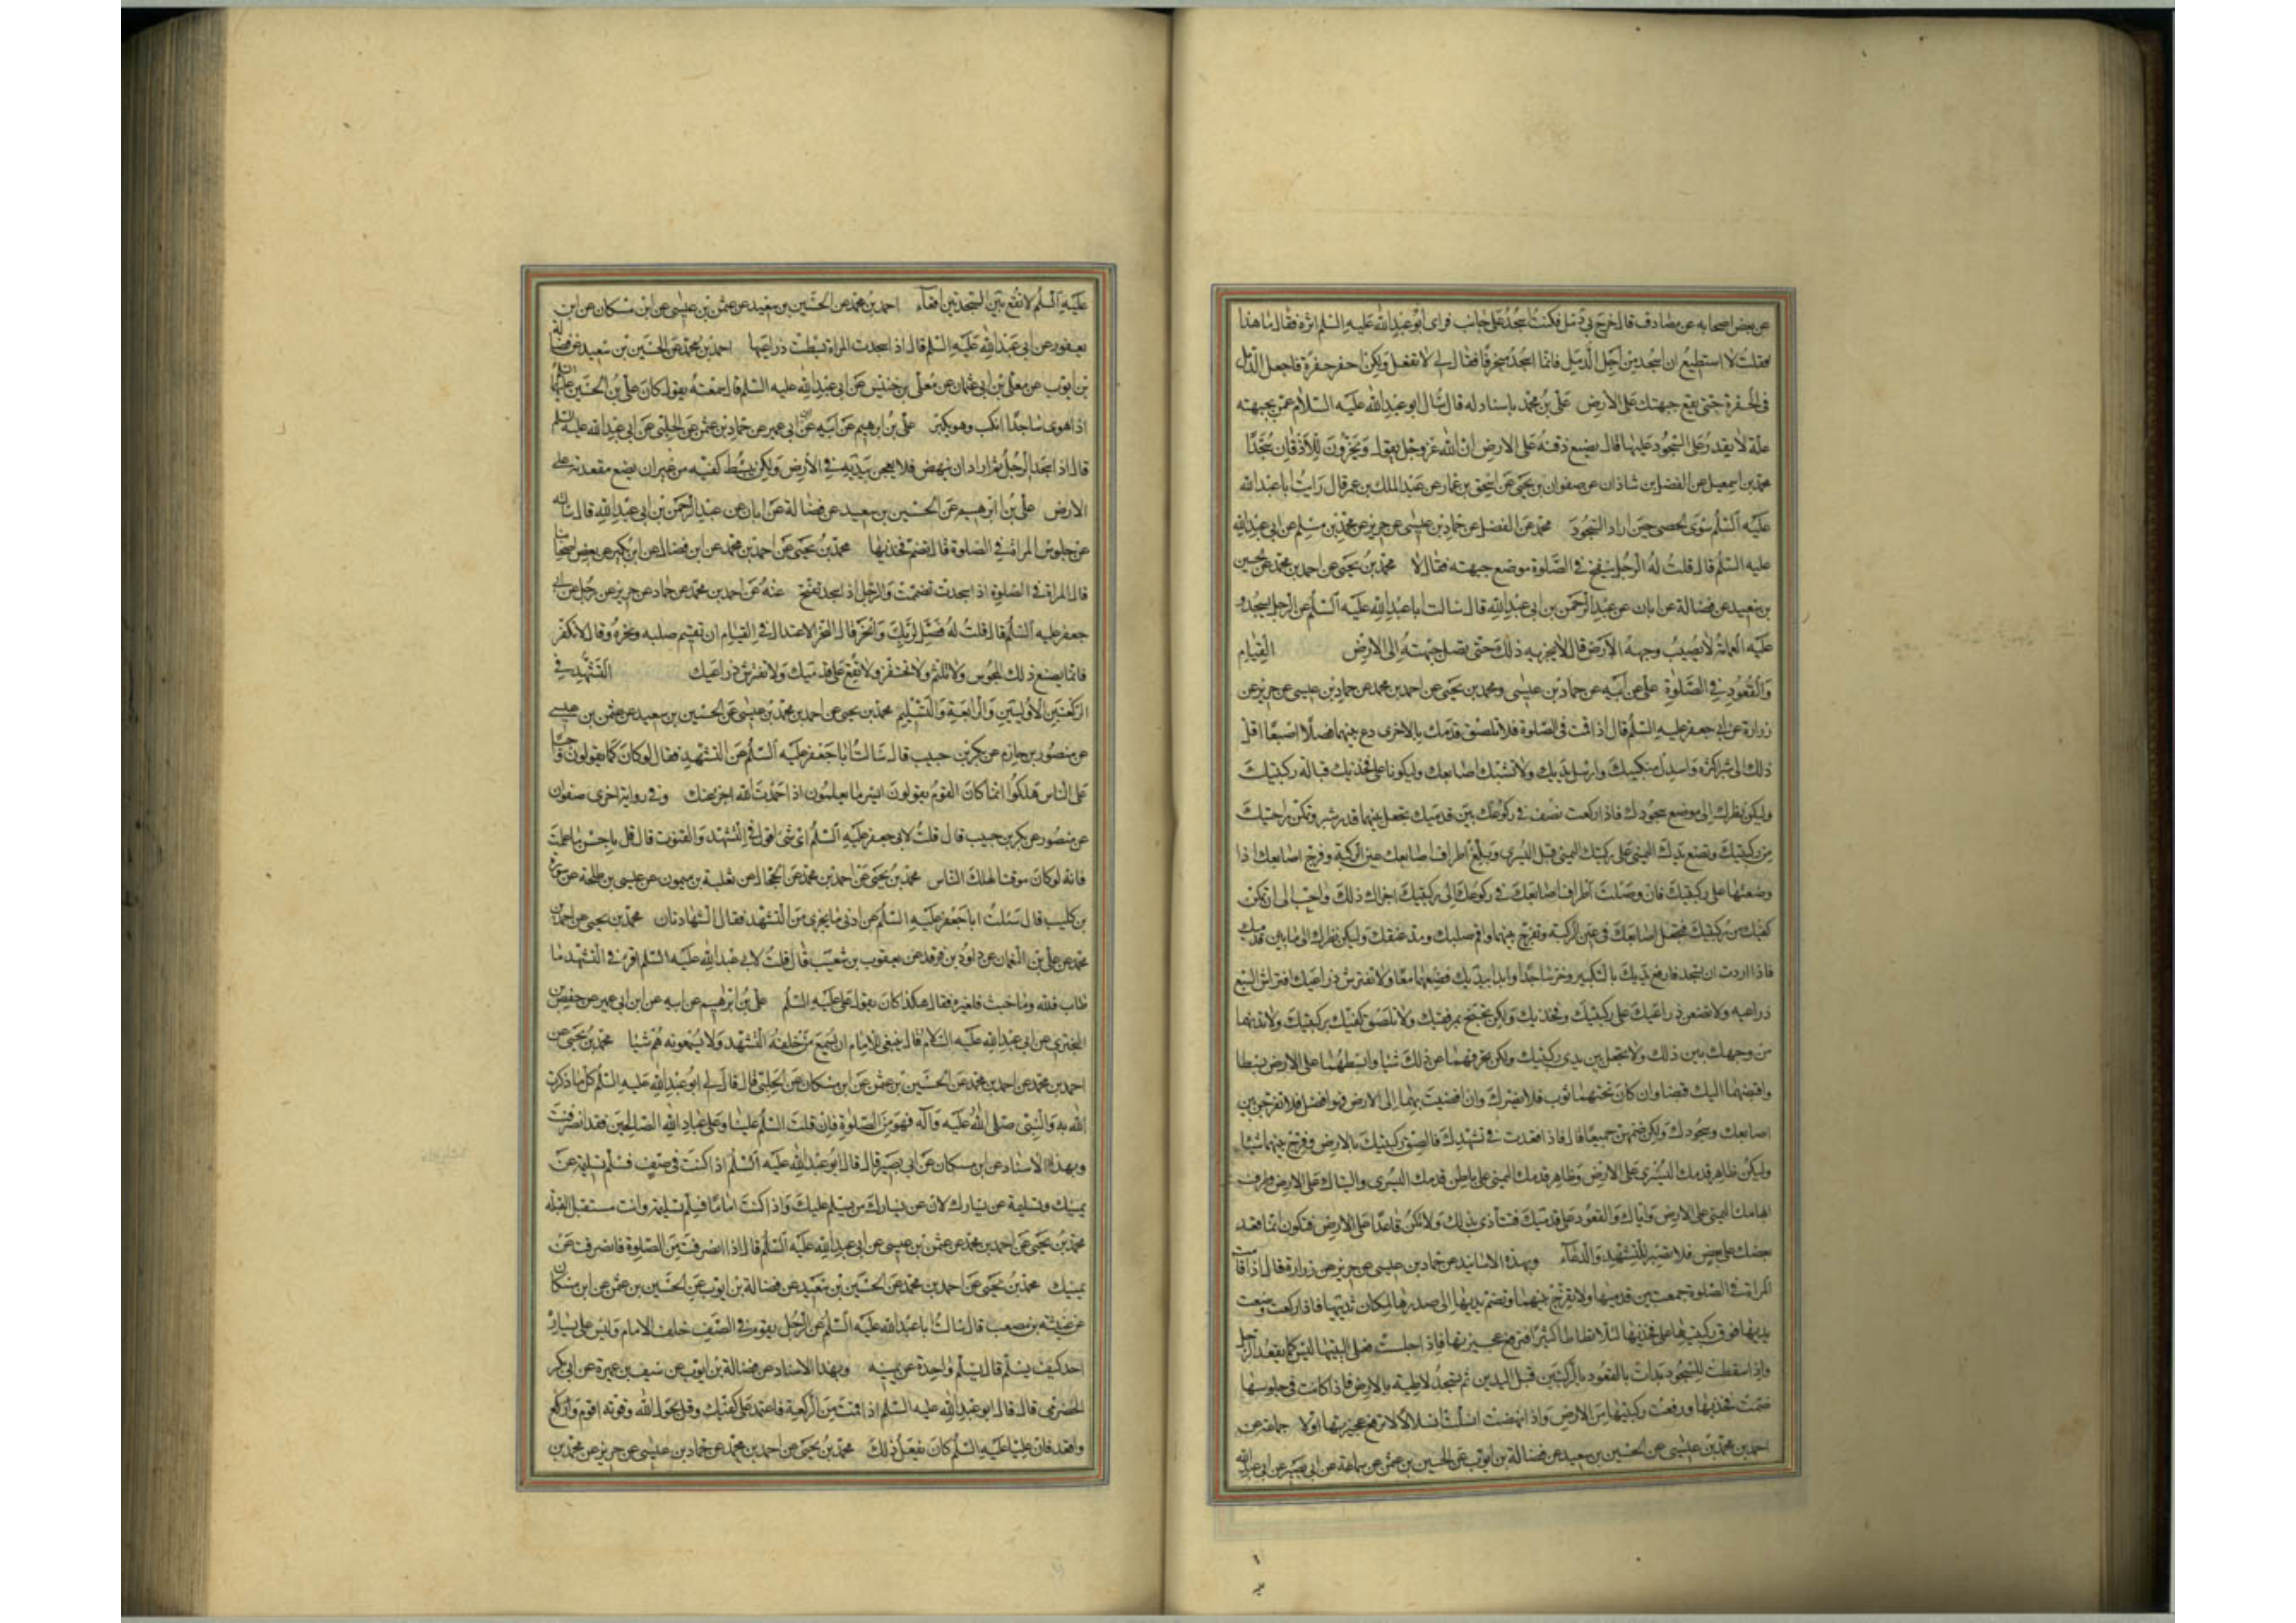 عن بعض اصحابه عن مصادف قال خرج بي دمل فكنت اسجد على جانب فراى ابو عبد الله عليه السلم اثره فقال ما هذا
فقلت لا استطيع ان اسجد من اجل الدمل فانما اسجد منحرفا فقال لي لا تفعل ولكن احفر حفرة فاجعل الدمل
في الحفرة حتى يقع جبهتك على الارض علي بن محمد باسناد له قال سال ابو عبد الله عليه السلام عمن بجبهته
علة لا يقدر على السجود عليها قال يضع ذقنه على الارض ان الله عز وجل يقول ويخرون للاذقان سجدا
محمد بن اسمعيل عن الفضل بن شاذان عن صفوان بن يحيى عن اسحق بن عمار عن عبد الملك بن عمر قال رايت ابا عبد الله
عليه السلم سوى الحصى حين اراد السجود محمد عن الفضل عن حماد بن عيسى عن حريز عن محمد بن مسلم عن ابي عبد الله
عليه السلم قال قلت له الرجل ينفخ في الصلوة موضع جبهته فقال لا محمد بن يحيى عن احمد بن محمد عن الحسين
بن سعيد عن فضالة عن ابان عن عبد الرحمن بن ابي عبد الله قال سالت ابا عبد الله عليه السلم عن الرجل يسجد و
عليه العمامة لا يصيب وجهه الارض قال لا يجزيه ذلك حتى تصل جبهته الى الارض القيام
والقعود في الصلوة علي عن ابيه عن حماد بن عيسى ومحمد بن يحيى عن احمد بن محمد عن حماد بن عيسى عن حريز عن
زرارة عن ابي جعفر عليه السلم قال اذا قمت في الصلوة فلا تلصق قدمك بالاخرى دع بينهما فصلا اصبعا اقل
ذلك الى شبر اكثره واسدل منكبيك وارسل يديك ولا تشبك اصابعك وليكونا على فخذيك قبالة ركبتيك
وليكن نظرك الى موضع سجودك فاذا ركعت فصف في ركوعك بين قدميك تجعل بينهما قدر شبر وتمكن راحتيك
من ركبتيك وتضع يدك اليمنى على ركبتك اليمنى قبل اليسرى وبلغ اطراف اصابعك عين الركبة وفرج اصابعك اذا
وضعتها على ركبتيك فان وصلت اطراف اصابعك في ركوعك الى ركبتيك اجزاك ذلك واحب الي ان تمكن
كفيك من ركبتيك فتجعل اصابعك في عين الركبة وتفرج بينهما واقم صلبك ومد عنقك وليكن نظرك الى ما بين قدميك
فاذا اردت ان تسجد فارفع يديك بالتكبير وخر ساجدا وابدا بيديك فضعهما معا ولا تفترش ذراعيك افتراش السبع
ذراعيه ولا تضعن ذراعيك على ركبتيك وفخذيك ولكن تجنح بمرفقيك ولا تلصق كفيك بركبتيك ولا تدنهما
من وجهك بين ذلك ولا تجعل بين يدي ركبتيك ولكن تحرفهما عن ذلك شيا وابسطهما على الارض بسطا
واقبضهما اليك قبضا وان كان تحتهما ثوب فلا يضرك وان افضيت بهما الى الارض فهو افضل فلا تفرجن بين
اصابعك وسجودك ولكن ضمهن جميعا قال فاذا قعدت في تشهدك فالصق ركبتيك بالارض وفرج بينهما شيا
وليكن ظاهر قدمك اليسرى على الارض وظاهر قدمك اليمنى على باطن قدمك اليسرى والياك على الارض وطرف
ابهامك اليمنى على الارض واياك والقعود على قدميك فتتاذى بذلك ولا تكن قاعدا على الارض فتكون انما قعد
بعضك على بعض فلا تصبر للتشهد والدعاء وبهذه الاسانيد عن حماد بن عيسى عن حريز عن زرارة قال اذا قامت
المراة في الصلوة جمعت بين قدميها ولا تفرج بينهما وتضم يديها الى صدرها لمكان ثدييها فاذا ركعت وضعت
يديها فوق ركبتيها على فخذيها لئلا تطاطا كثيرا فترفع عجيزتها فاذا جلست فعلى اليتيها ليس كما يقعد الرجل
واذا سقطت للسجود بدات بالقعود بالركبتين قبل اليدين ثم تسجد لاطية بالارض فاذا كانت في جلوسها
ضمت فخذيها ورفعت ركبتيها من الارض واذا نهضت انسلت انسلالا لا ترفع عجيزتها اولا جماعة عن
احمد بن محمد بن عيسى عن الحسين بن سعيد عن فضالة بن ايوب عن الحسين بن عثمن عن سماعة عن ابي بصير عن ابي عبد الله
عليه السلم لا تقع بين السجدتين اقعاء احمد بن محمد عن الحسين بن سعيد عن عثمن بن عيسى عن ابن مسكان عن ابن
يعفور عن ابي عبد الله عليه السلم قال اذا سجدت المراة بسطت ذراعيها احمد بن محمد عن الحسين بن سعيد عن فضالة
بن ايوب عن معلى بن ابي عثمان عن معلى بن خنيس عن ابي عبد الله عليه السلم قال سمعته يقول كان علي بن الحسين عليهما السلم
اذا هوى ساجدا انكب وهو يكبر علي بن ابرهيم عن ابيه عن ابن ابي عمير عن حماد بن عثمن عن الحلبي عن ابي عبد الله عليه السلم
قال اذا سجد الرجل ثم اراد ان ينهض فلا يعجن بيديه في الارض ولكن يبسط كفيه من غير ان يضع مقعدته على
الارض علي بن ابرهيم عن الحسين بن سعيد عن فضالة عن ابان عن عبد الرحمن بن ابي عبد الله قال سالته
عن جلوس المراة في الصلوة قال تضم فخذيها محمد بن يحيى عن احمد بن محمد عن ابن فضال عن ابن بكير عن بعض اصحابنا
قال المراة في الصلوة اذا سجدت تضممت والرجل اذا سجد تفتح عنه عن احمد بن محمد عن حماد عن حريز عن رجل عن ابي
جعفر عليه السلم قال قلت له فصل لربك وانحر قال النحر الاعتدال في القيام ان تقيم صلبه ونحره وقال لا تكفر
فانما يصنع ذلك المجوس ولا تلثم ولا تحتفز ولا تقع على قدميك ولا تفترش ذراعيك التشهد في
الركعتين الاوليتين والرابعة والتسليم محمد بن يحيى عن احمد بن محمد بن عيسى عن الحسين بن سعيد عن عثمن بن عيسى
عن منصور بن حازم عن بكر بن حبيب قال سالت ابا جعفر عليه السلم عن التشهد فقال لو كان كما يقولون واجبا
على الناس هلكوا انما كان القوم يقولون ايسر ما يعلمون اذا حمدت الله اجزى عنك وفي رواية اخرى صفوان
عن منصور عن بكر بن حبيب قال قلت لابي جعفر عليه السلم اي شي اقول في التشهد والقنوت قال قل باحسن ما علمت
فانه لو كان موقتا لهلك الناس محمد بن يحيى عن احمد بن محمد عن الحجال عن ثعلبة بن ميمون عن عيسى بن طلحة عن سورة
بن كليب قال سئلت ابا جعفر عليه السلم عن ادنى ما يجزي من التشهد فقال الشهادتان محمد بن يحيى عن احمد بن
محمد عن علي بن النعمان عن داود بن فرقد عن يعقوب بن شعيب قال قلت لابي عبد الله عليه السلم اقرء في التشهد ما
طاب فلله وما خبث فلغيره فقال هكذا كان يقول علي عليه السلم علي بن ابرهيم عن ابيه عن ابن ابي عمير عن حفص بن
البختري عن ابي عبد الله عليه السلام قال ينبغي للامام ان يسمع من خلفه التشهد ولا يسمعونه هم شيا محمد بن يحيى عن
احمد بن محمد عن احمد بن محمد عن الحسين بن عثمن عن ابن مسكان عن الحلبي قال قال لي ابو عبد الله عليه السلم كل ما ذكرت
الله به والنبي صلى الله عليه وآله فهو من الصلوة فان قلت السلم علينا وعلى عباد الله الصالحين فقد انصرفت
وبهذا الاسناد عن ابن مسكان عن ابي بصير قال قال ابو عبد الله عليه السلم اذا كنت في صف فسلم تسليمة عن
يمينك وتسليمة عن يسارك لان عن يسارك من يسلم عليك واذا كنت اماما فسلم تسليمة وانت مستقبل القبلة
محمد بن يحيى عن احمد بن محمد عن عثمن بن عيسى عن ابي عبد الله عليه السلم قال اذا انصرفت من الصلوة فانصرف عن
يمينك محمد بن يحيى عن احمد بن محمد عن الحسين بن سعيد عن فضالة بن ايوب عن الحسين بن عثمن عن ابن مسكان
عن عنبسة بن مصعب قال سالت ابا عبد الله عليه السلم عن الرجل يقوم في الصف خلف الامام وليس على يساره
احد كيف يسلم قال يسلم واحدة عن يمينه وبهذا الاسناد عن فضالة بن ايوب عن سيف بن عميرة عن ابي بكر
الحضرمي قال قال ابو عبد الله عليه السلم اذا قمت من الركعة فاعتمد على كفيك وقل بحول الله وقوته اقوم واركع
واقعد فان عليا عليه السلم كان يفعل ذلك محمد بن يحيى عن احمد بن محمد عن حماد بن عيسى عن حريز عن محمد بن